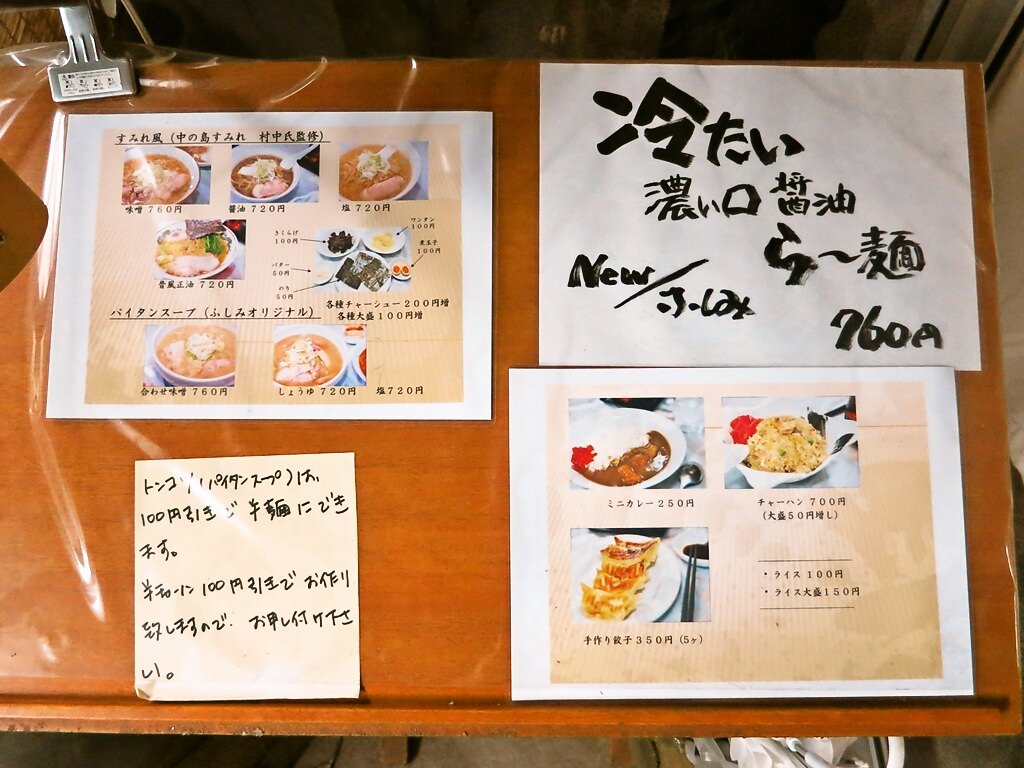 すみれ風（中の島すみれ　村中氏監修）
味噌７６０円
醤油７２０円
塩７２０円
昔風正油　７２０円
きくらげ
１００円
ワンタン
１００円
煮玉子
１００円
バター
５０円
のり
５０円
各種チャーシュー２００円増
各種大盛１００円増
パイタンスープ（ふしみオリジナル）
合わせ味噌７６０円
しょうゆ　７２０円
塩７２０円
冷たい
濃い口醤油
らー麺
New／ふしみ
760円
ミニカレー２５０円
チャーハン　７００円
（大盛５０円増し）
手作り餃子３５０円（５ヶ）
・ライス　１００円
・ライス大盛１５０円
トンコツ（パイタンスープ）は、
100円引きで 半麺にでき
ます。
半チャーハン100円引きで お作り
致しますので、お申し付け下さ
い。